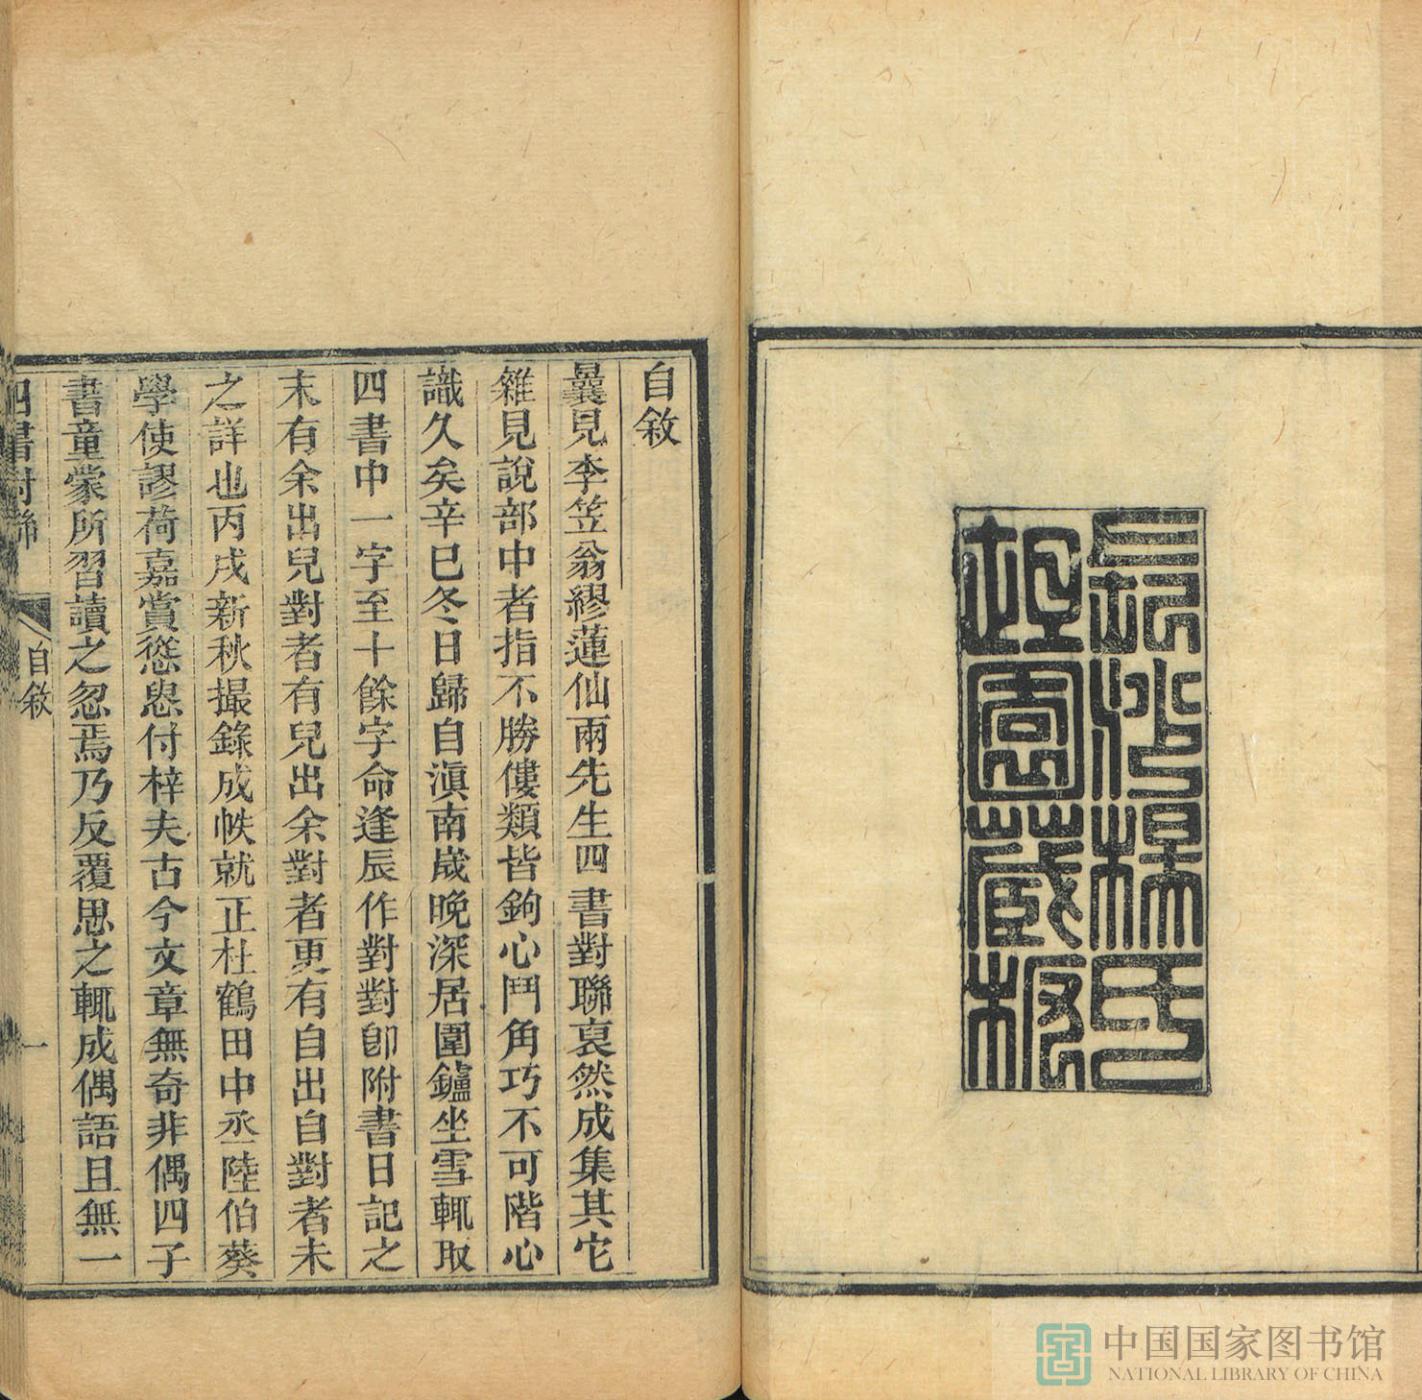 長沙楊氏
坦園藏板
自敘
曩見李笠翁繆蓮仙兩先生四書對聯裒然成集其它
雜見說部中者指不勝僂類皆鉤心鬥角巧不可階心
識久矣辛巳冬日歸自滇南歲晚深居圍鑪坐雪輒取
四書中一字至十餘字命逢辰作對對卽附書日記之
末有余出兒對者有兒出余對者更有自出自對者未
之詳也丙戌新秋撮錄成帙就正杜鶴田中丞陸伯葵
學使謬荷嘉賞慫恿付梓夫古今文章無奇非偶四子
書童蒙所習讀之忽焉乃反覆思之輒成偶語且無一
四書對聯 自敘 一
中国国家图书馆
NATIONAL LIBRARY OF CHINA